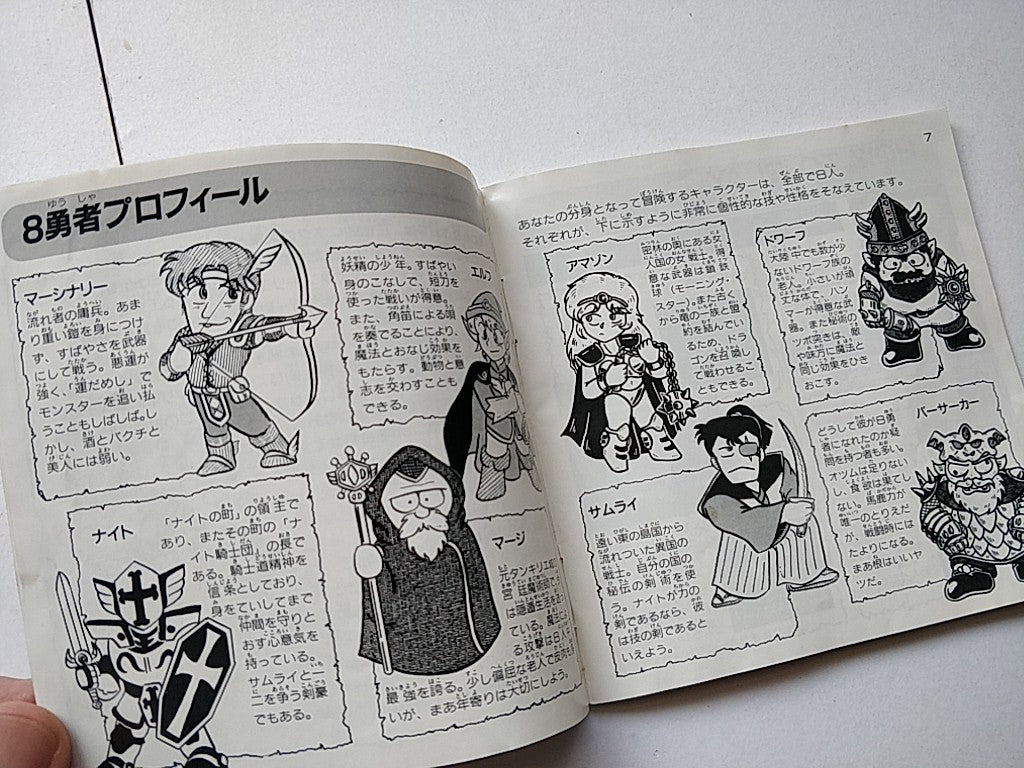 8勇者プロフィール
ゆう しゃ
マーシナリー
流れ者の傭兵。あま
り重い鎧を身につけ
ず、すばやさを武器
にして戦う。悪運が
強く、「運だめし」で
モンスターを追い払
うこともしばしば。し
かし、酒とバクチと
美人には弱い。
エルフ
妖精の少年。すばやい
身のこなしで、短刀を
使った戦いが得意。
また、角笛による唄
を奏でることにより、
魔法とおなじ効果を
もたらす。動物と意
志を交わすことも
できる。
ナイト
「ナイトの町」の領主で
あり、またその町の「ナ
イト騎士団」の長で
ある。騎士道精神を
信条としており、
身をていしてまで
仲間を守りと
おす心意気を
持っている。
サムライと一
二を争う剣豪
でもある。
マージ
元タンキリエ城の
宮廷魔術師で
は隠遁生活を送っ
ている。魔法によ
る攻撃は8人中
最強を誇る。少し偏屈な老人で皮肉も
いが、まあ年寄りは大切にしよう。
7
あなたの分身となって冒険するキャラクターは、全部で8人。
それぞれが、下に示すように非常に個性的な技や性格をそなえています。
アマゾン
密林の奥にある女
人国の女戦士。得
意な武器は鎖鉄
球(モーニング・
スター)。また古く
から竜の一族と盟
約を結んでい
るため、ドラ
ゴンを召喚し
て戦わせるこ
ともできる。
ドワーフ
大陸中でも数が少
ないドワーフ族の
老人。小さいが頑
丈な体で、ハン
マーが得意な武
器。また秘術の
ツボ突きは、敵
や味方に魔法と
同じ効果をひき
おこす。
サムライ
遠い東の島国から
流れついた異国の
戦士。自分の国の
秘伝の剣術を使
う。ナイトが力の
剣であるなら、彼
は技の剣であると
いえよう。
バーサーカー
どうして彼が8勇
者になれたのか疑
問を持つ者も多い。
オツムは足りない
し、食欲は果てし
ない。馬鹿力が
唯一のとりえだ
が、戦闘時には
たよりになる。
まあ根はいいヤ
ツだ。